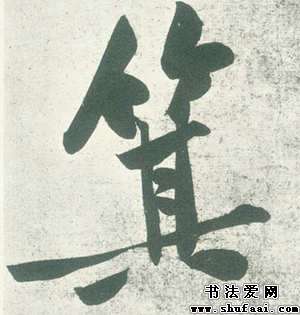 箕
书法爱网
www.shufaai.com